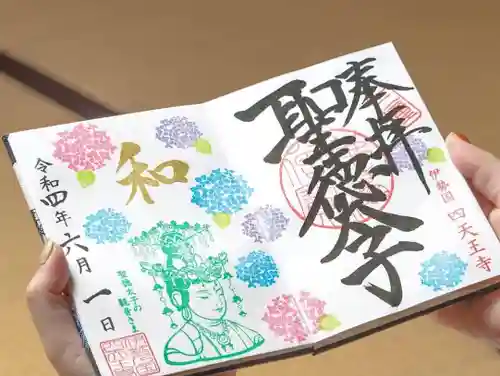 奉拝
聖徳太子
伊勢國 四天王寺
和
聖徳太子の
観音さま
令和四年六月一日